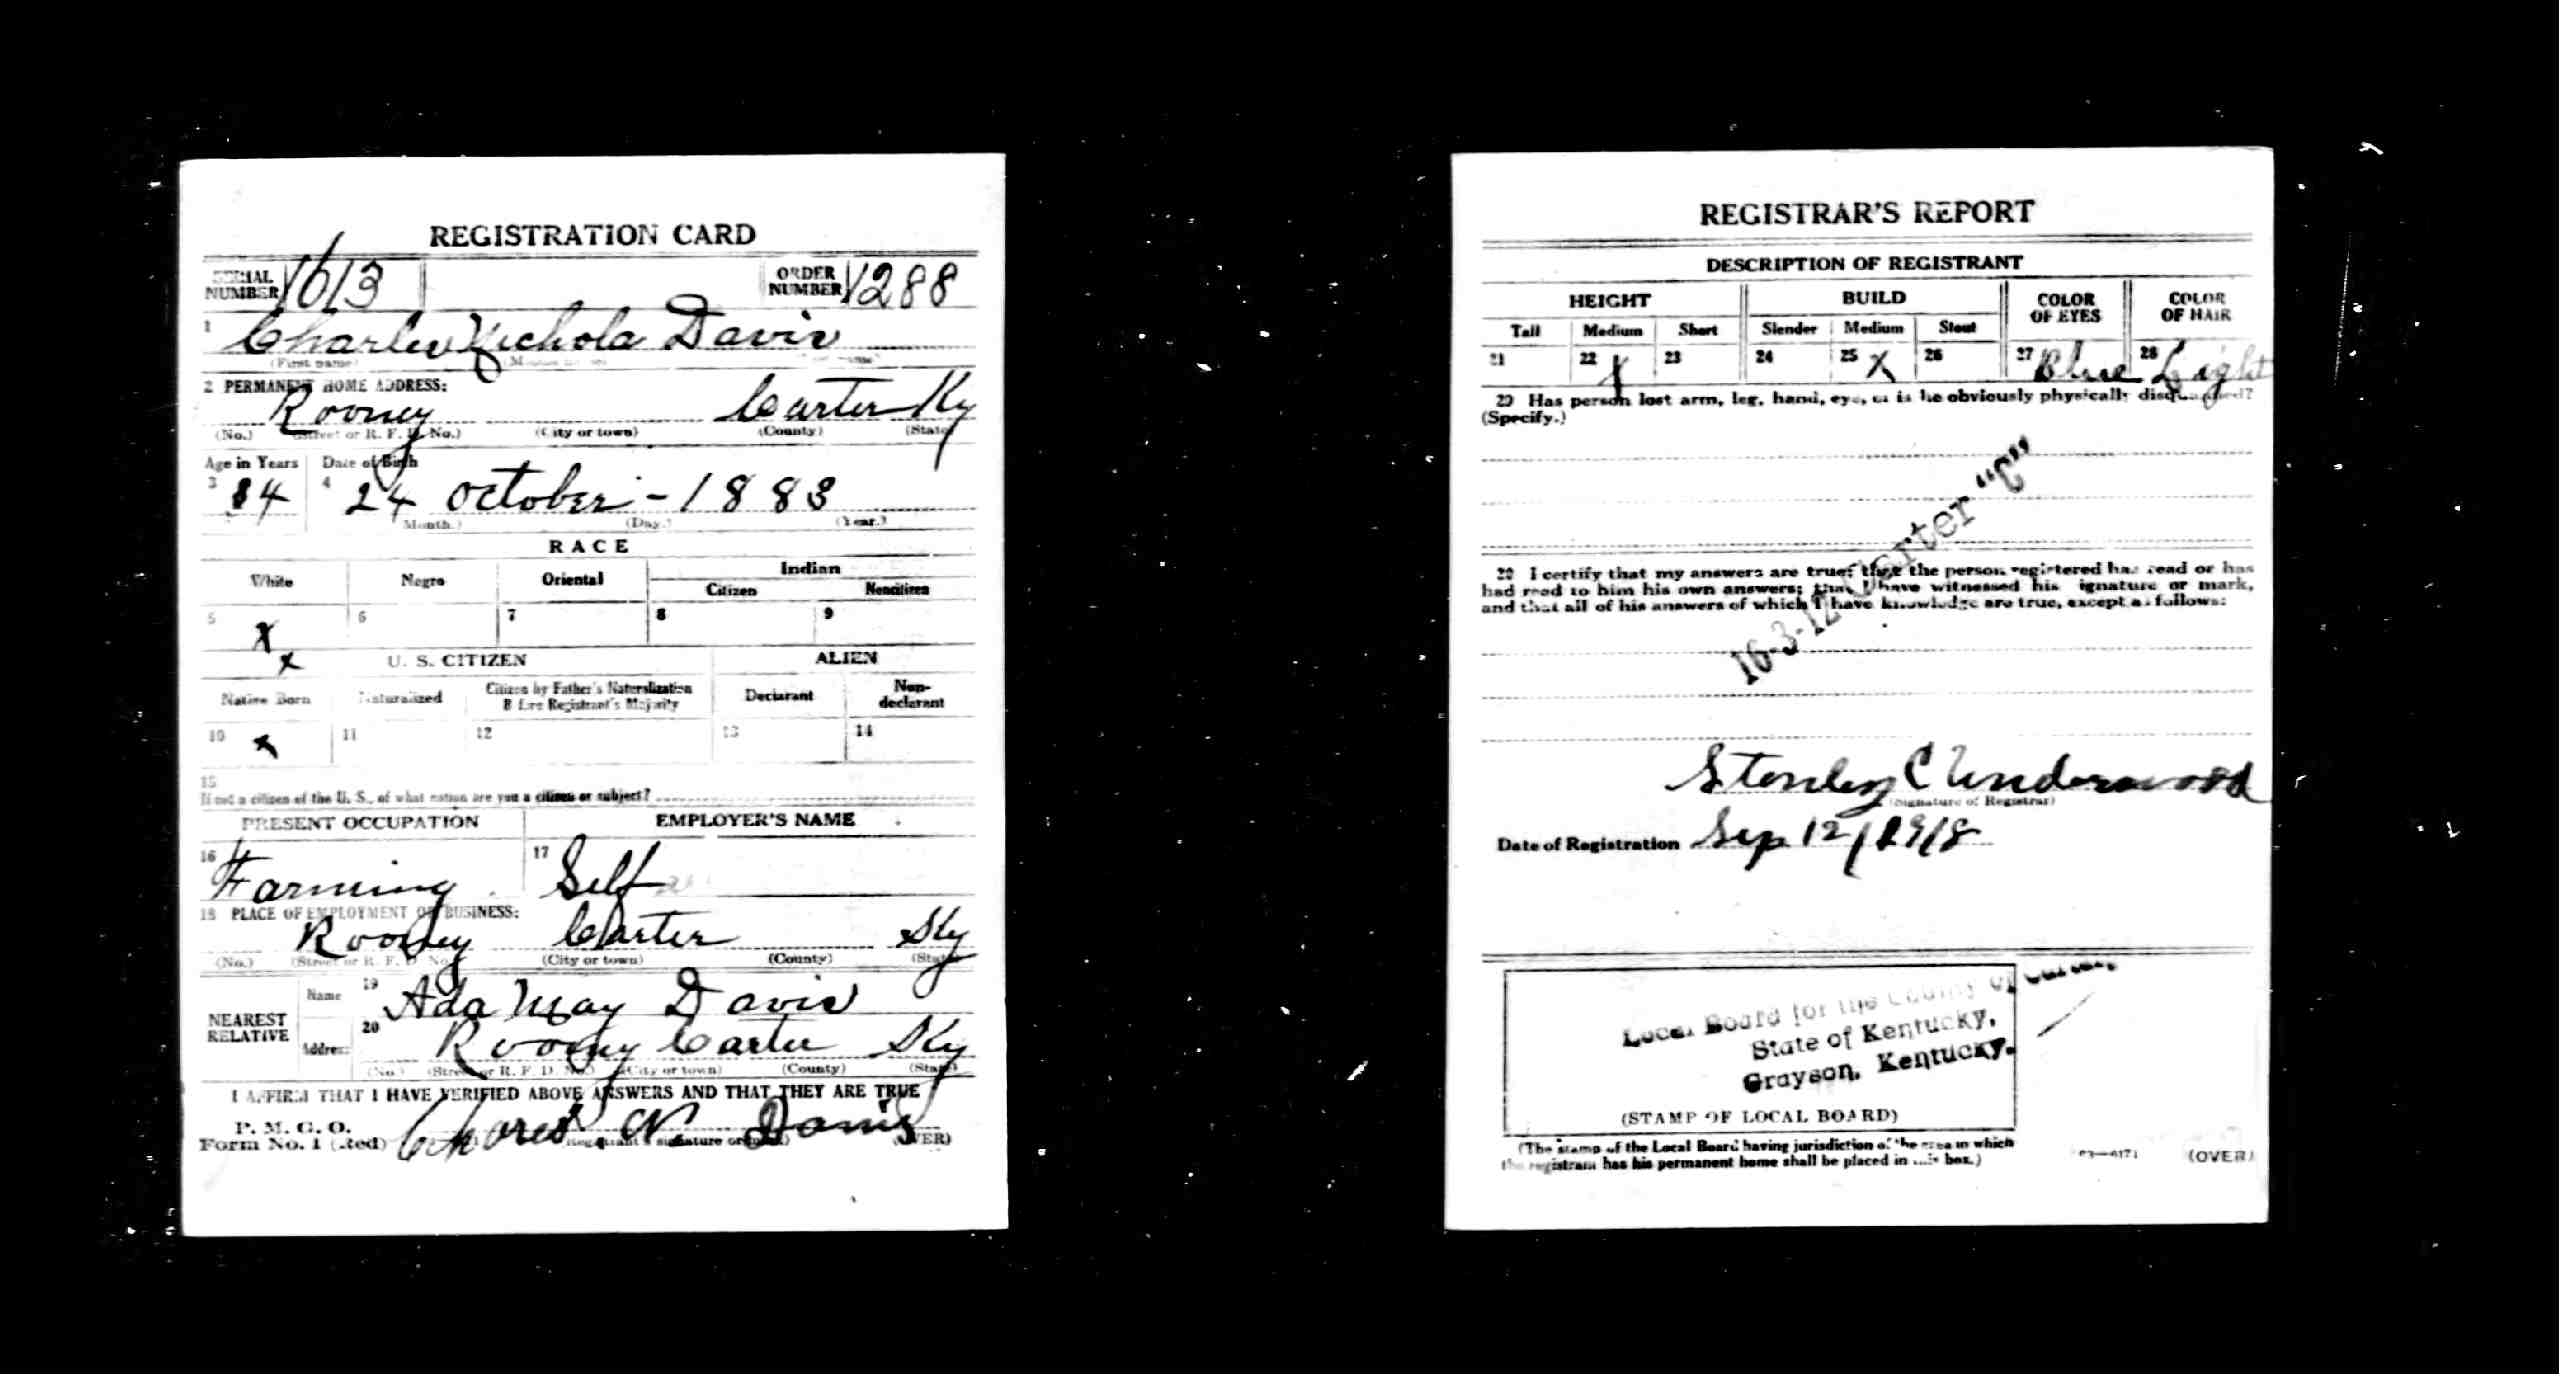 REGISTRATION CARD
SERIAL NUMBER 1613 ORDER NUMBER 1288
1 Charles Nichola Davis
(First name)
2 PERMANENT HOME ADDRESS:
Rooney Carter Ky
(No.) (Street or R. F. D. No.) (City or town) (County) (State)
Age in Years Date of Birth
3 34 4 24 October - 1883
(Month.) (Day.) (Year.)
RACE
White Negro Oriental Indian
Citizen Noncitizen
5 X 6 7 8 9
x
U. S. CITIZEN ALIEN
Native Born Naturalized Citizen by Father's Naturalization Before Registrant's Majority Declarant Non-declarant
10 x 11 12 13 14
15
If not a citizen of the U. S., of what nation are you a citizen or subject?
PRESENT OCCUPATION EMPLOYER'S NAME
16 Farming 17 Self
18 PLACE OF EMPLOYMENT OR BUSINESS:
Rooney Carter Ky
(No.) (Street or R. F. D. No.) (City or town) (County) (State)
NEAREST RELATIVE
Name 19 Ada May Davis
Address 20 Roony Carter Ky
(No.) (Street or R. F. D. No.) (City or town) (County) (State)
I AFFIRM THAT I HAVE VERIFIED ABOVE ANSWERS AND THAT THEY ARE TRUE
P. M. G. O.
Form No. 1 (Red) N Davis
(Registrant's signature or mark) (OVER)
REGISTRAR'S REPORT
DESCRIPTION OF REGISTRANT
HEIGHT BUILD COLOR OF EYES COLOR OF HAIR
Tall Medium Short Slender Medium Stout
21 22 X 23 24 25 X 26 27 Blue 28 Light
29 Has person lost arm, leg, hand, eye, or is he obviously physically disqualified?
(Specify.)
16-3-12 Carter "C"
30 I certify that my answers are true; that the person registered has read or has
had read to him his own answers; that I have witnessed his signature or mark,
and that all of his answers of which I have knowledge are true, except as follows:
Stanley C Underwood
(Signature of Registrar)
Date of Registration Sep 12/1918
Local Board for the County of Carter,
State of Kentucky,
Grayson, Kentucky.
(STAMP OF LOCAL BOARD)
(The stamp of the Local Board having jurisdiction of the area in which
the registrant has his permanent home shall be placed in this box.)
(OVER)